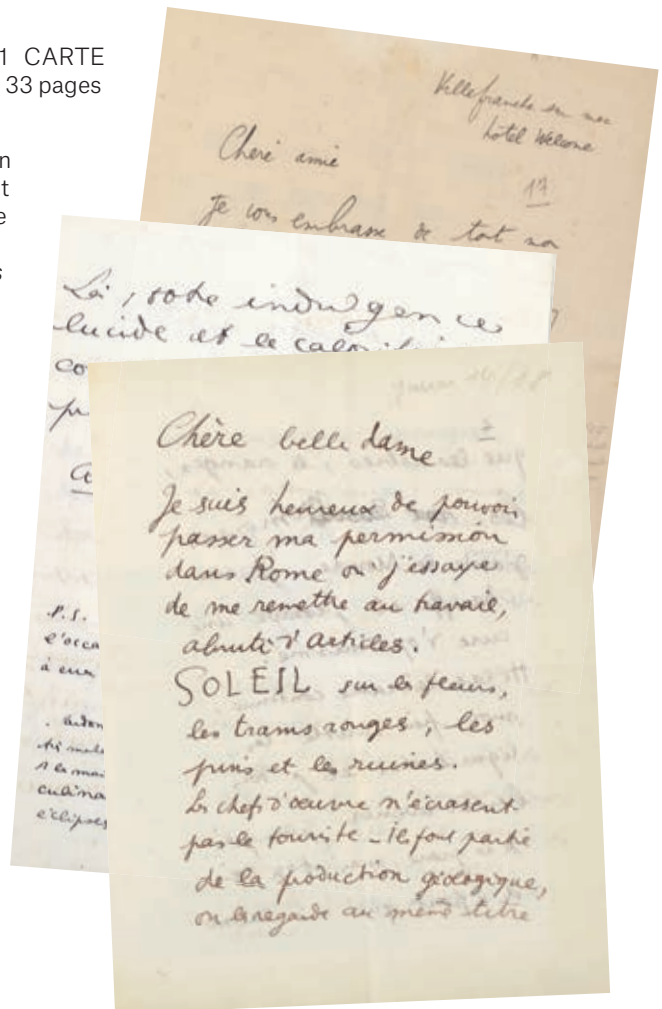 1 CARTE
33 pages
n
t
e
s
Villefranche sur mer
hôtel Welcome
17
Cheré amie
Je vous embrasse de tout
indulgence
lucide et
co
P.S.
l'occa
à eux
culina
eclipses
Chère belle dame
Je suis heureux de pouvoir
passer ma permission
dans Rome où j'essaye
de me remettre au travail,
abruti d'articles.
SOLEIL sur les fleurs,
les trams rouges, les
pins et les ruines.
Les chefs d'œuvre n'écrasent
pas le touriste – ils font partie
de la production géologique,
on les regarde au même titre